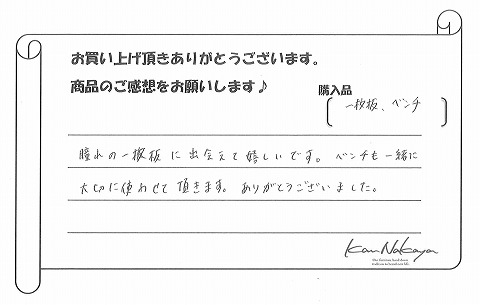 お買い上げ頂きありがとうございます。
商品のご感想をお願いします♪
購入品
一枚板、ベンチ
憧れの一枚板に出会えて嬉しいです。ベンチも一緒に
大切に使わせて頂きます。ありがとうございました。
Kan Nakaya